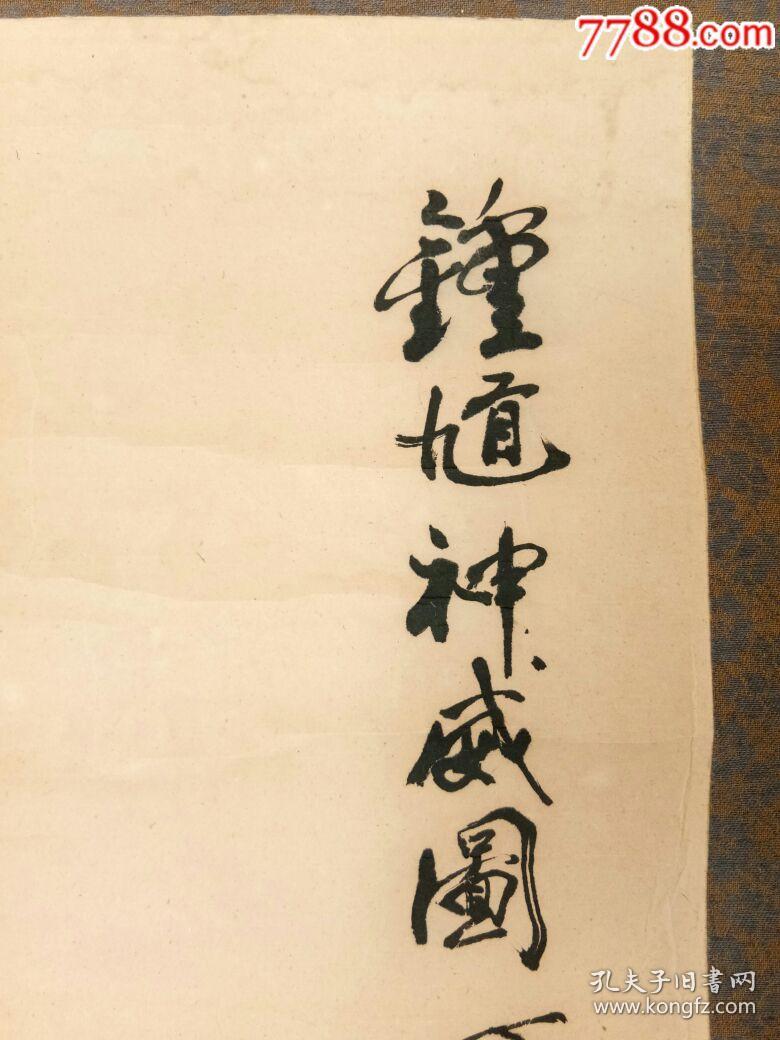 7788.com
鍾馗神威圖
孔夫子旧书网
www.kongfz.com